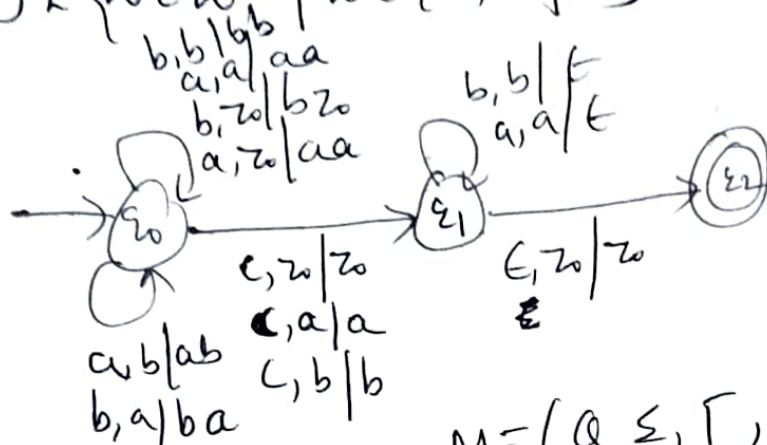 b,b|bb
a,a|aa
b,z0|bz0
a,z0|aa
b,b|ϵ
a,a|ϵ
q0
q1
q2
c,z0|z0
c,a|a
c,b|b
ϵ,z0|z0
a,b|ab
b,a|ba
M=(Q,Σ,Γ,